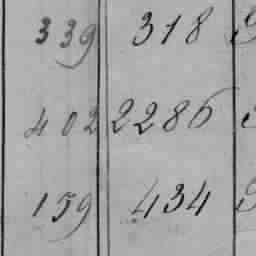 339 318
402 2286
159 434